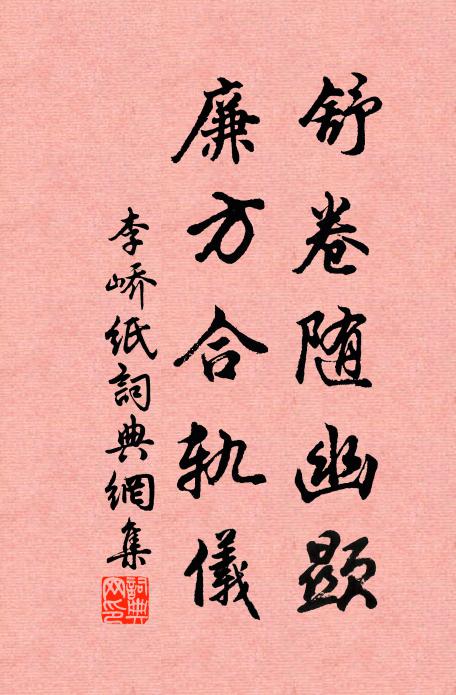 舒卷随幽顯
廉方合軌儀
李嶠紙詞典網集
詞典网印